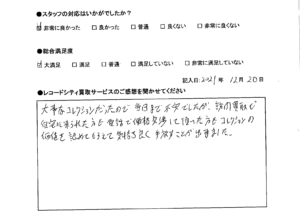 ●スタッフの対応はいかがでしたか？
非常に良かった □良かった □普通 □良くない □非常に良くない
●総合満足度
大満足 □満足 □普通 □満足していない □非常に満足していない
記入日:2021年 12月 20日
●レコードシティ買取サービスのご感想を聞かせてください
大事なコレクションだったので 当日まで不安でしたが、訪問買取で
自宅に来られた方も 電話で価格交渉して頂いた方も コレクションの
価値を認めて下さって 気持ち良く 手放すことが出来ました。